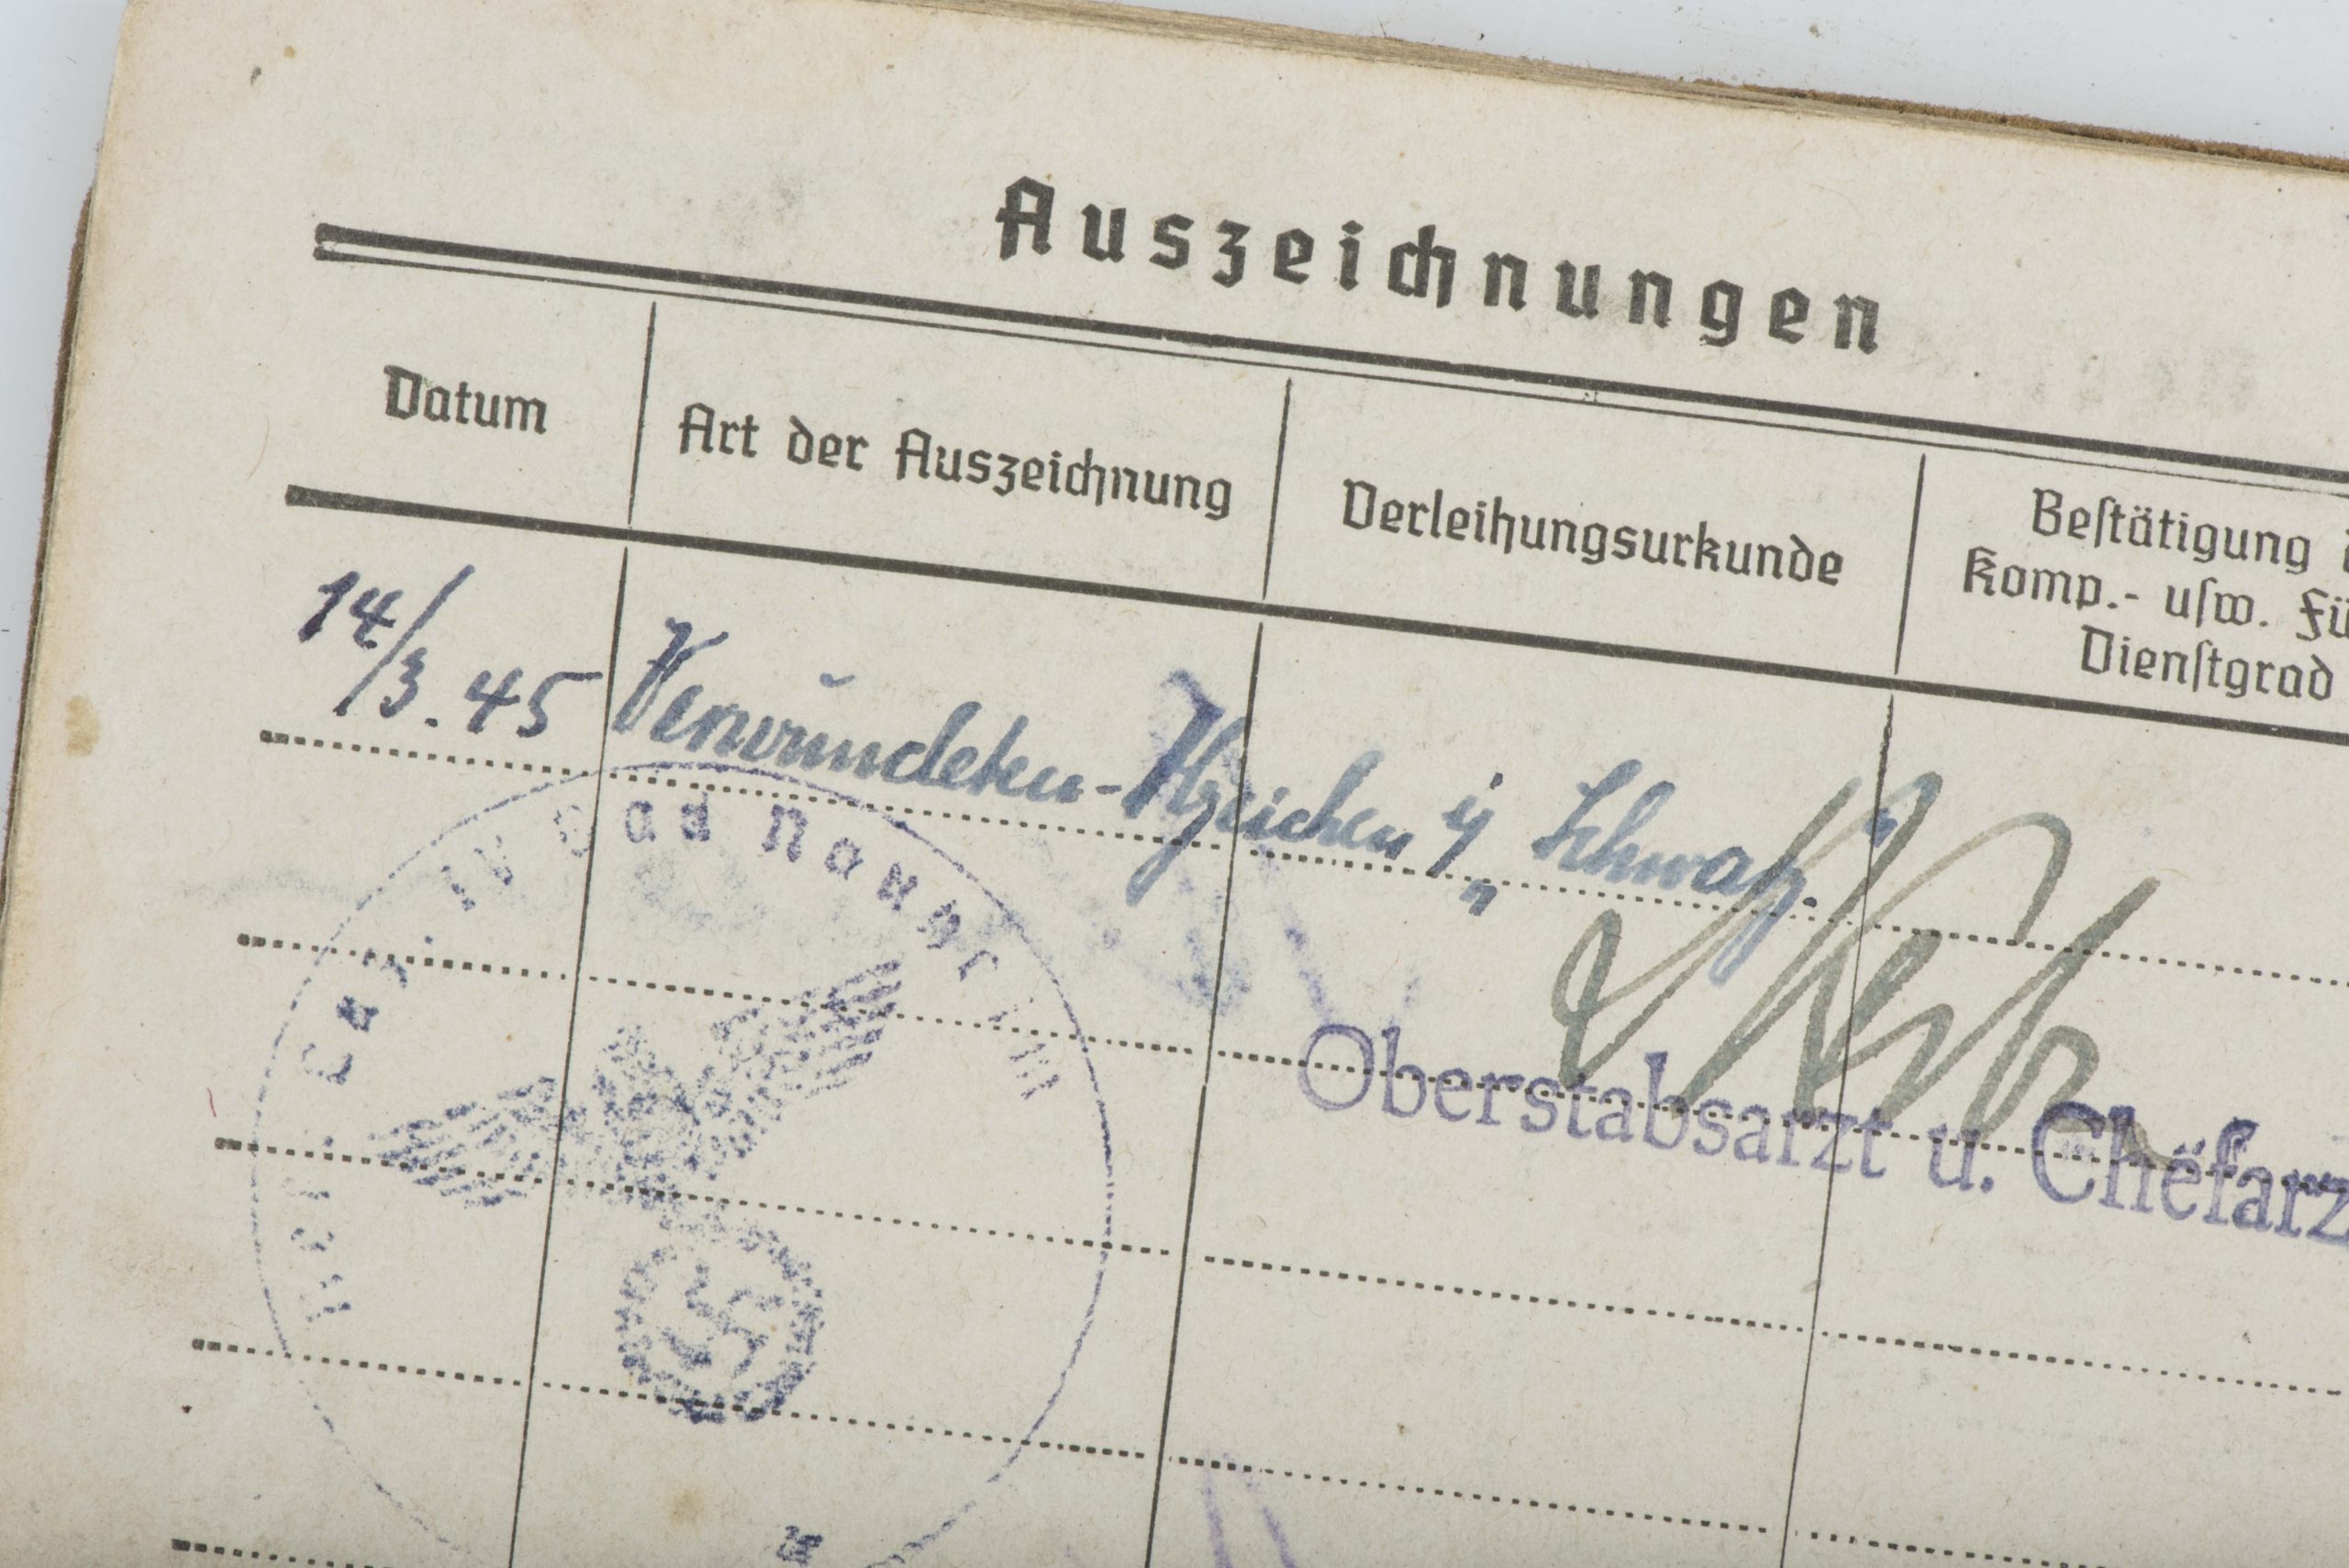 Auszeichnungen
Datum
Art der Auszeichnung
Verleihungsurkunde
Bestätigung
Komp.- usw. Fü
Dienstgrad
14/3.45 Verwundeten-Abzeichen i/ Schwarz.
Bad Nauheim
Oberstabsarzt u. Chefarz